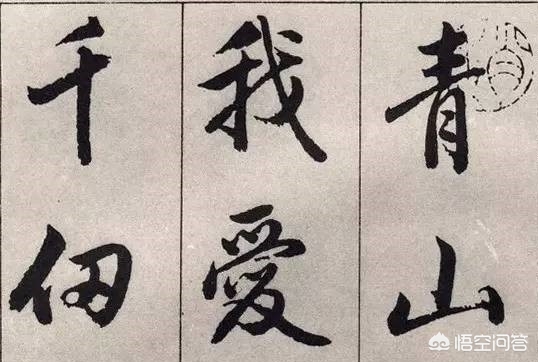 青山
我愛
千仞
悟空问答